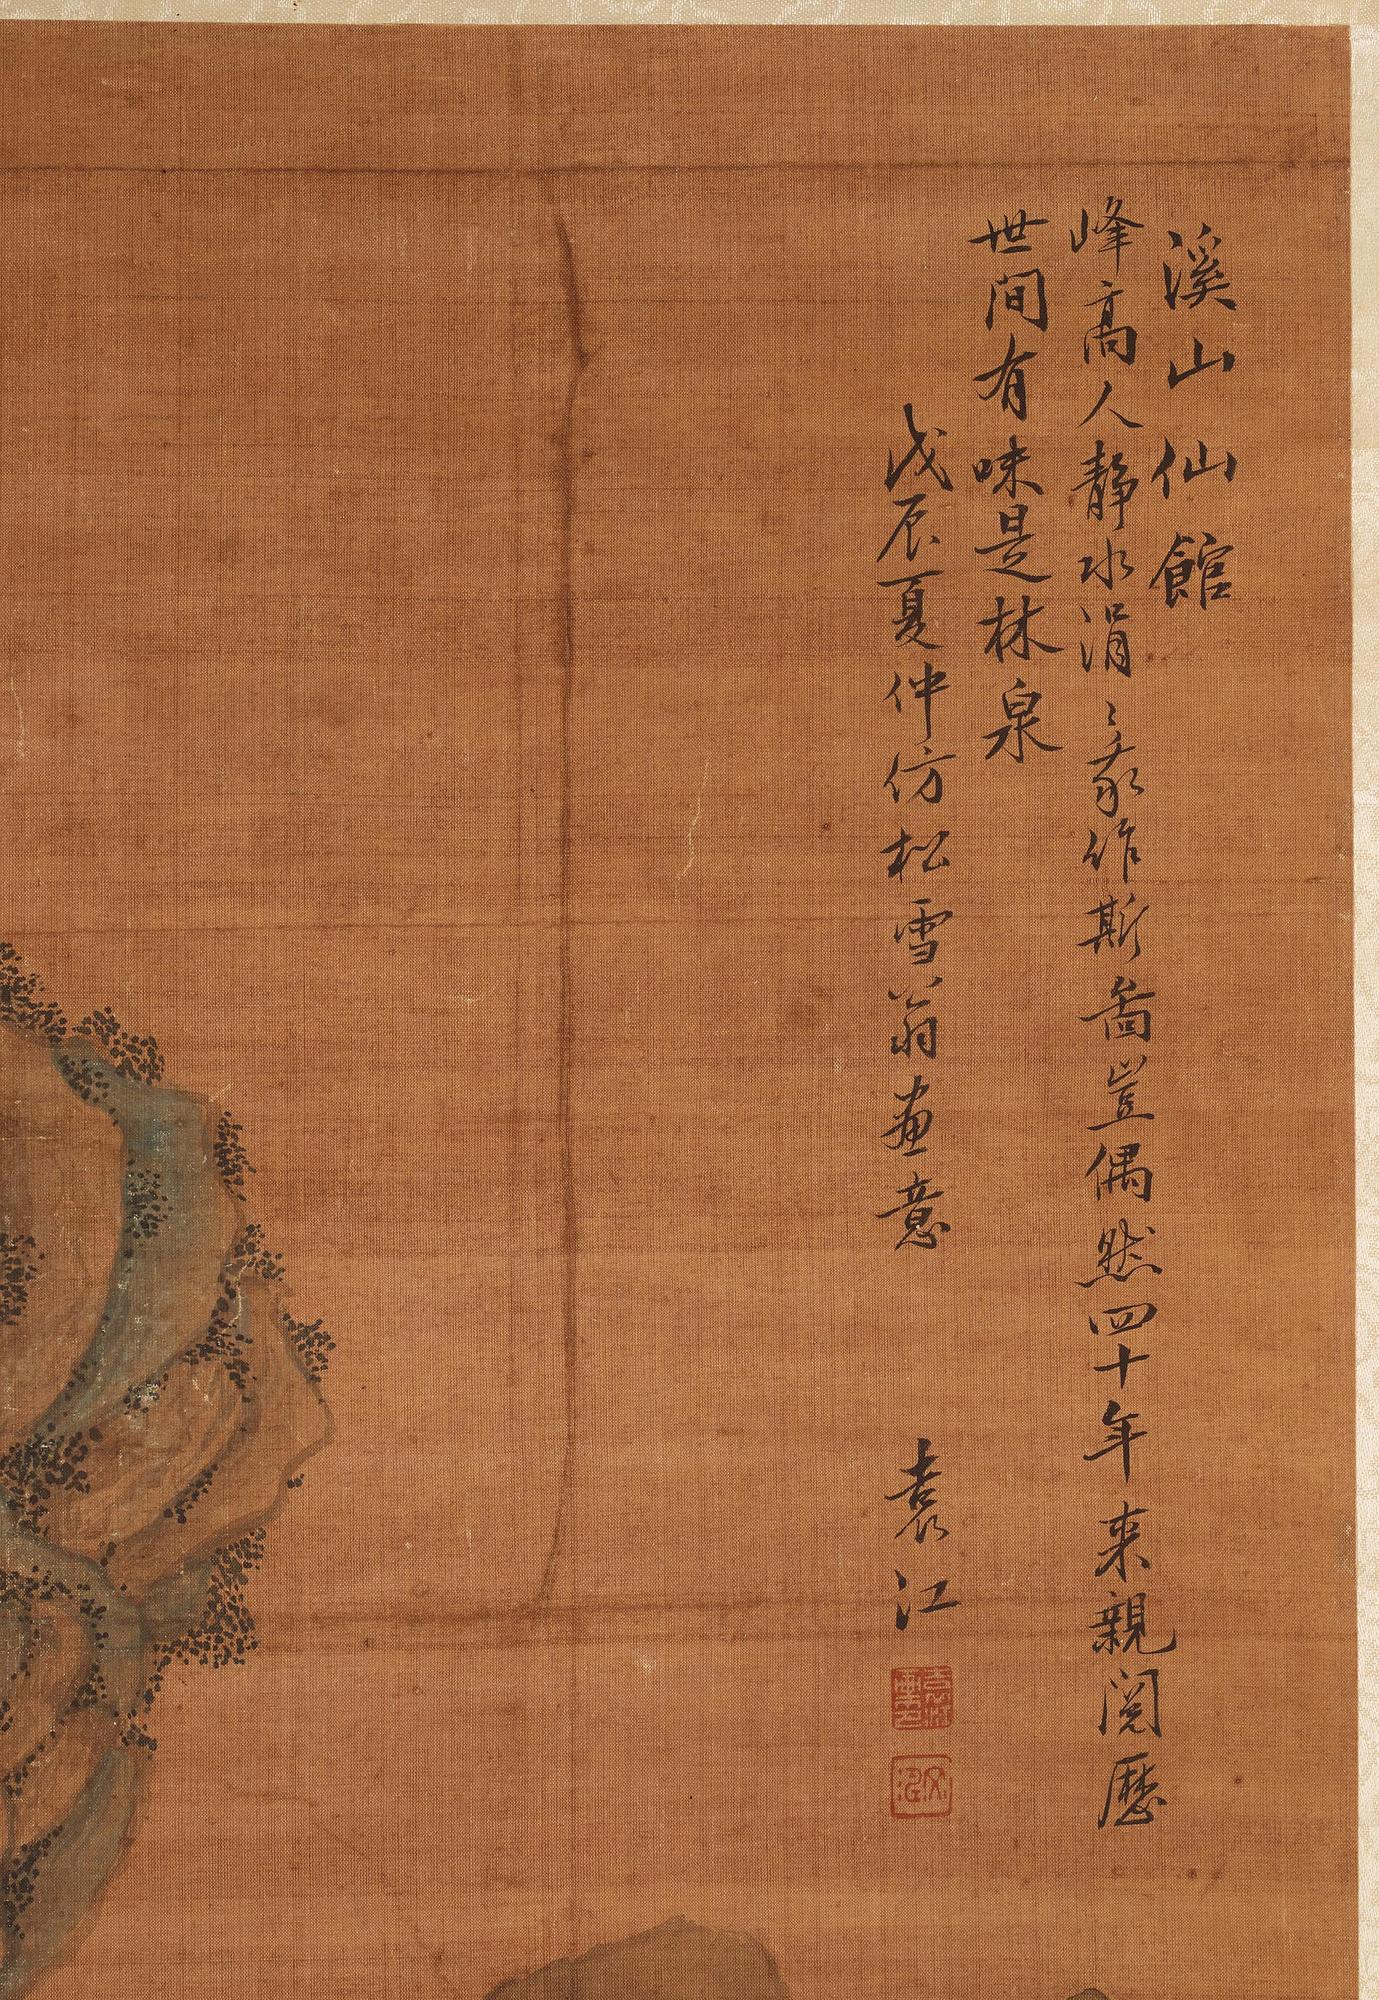 溪山仙館
峰高人靜水涓〻我作斯啚豈偶然四十年来親閱歷
世间有味是林泉
戊辰夏仲仿松雪翁畫意
袁江